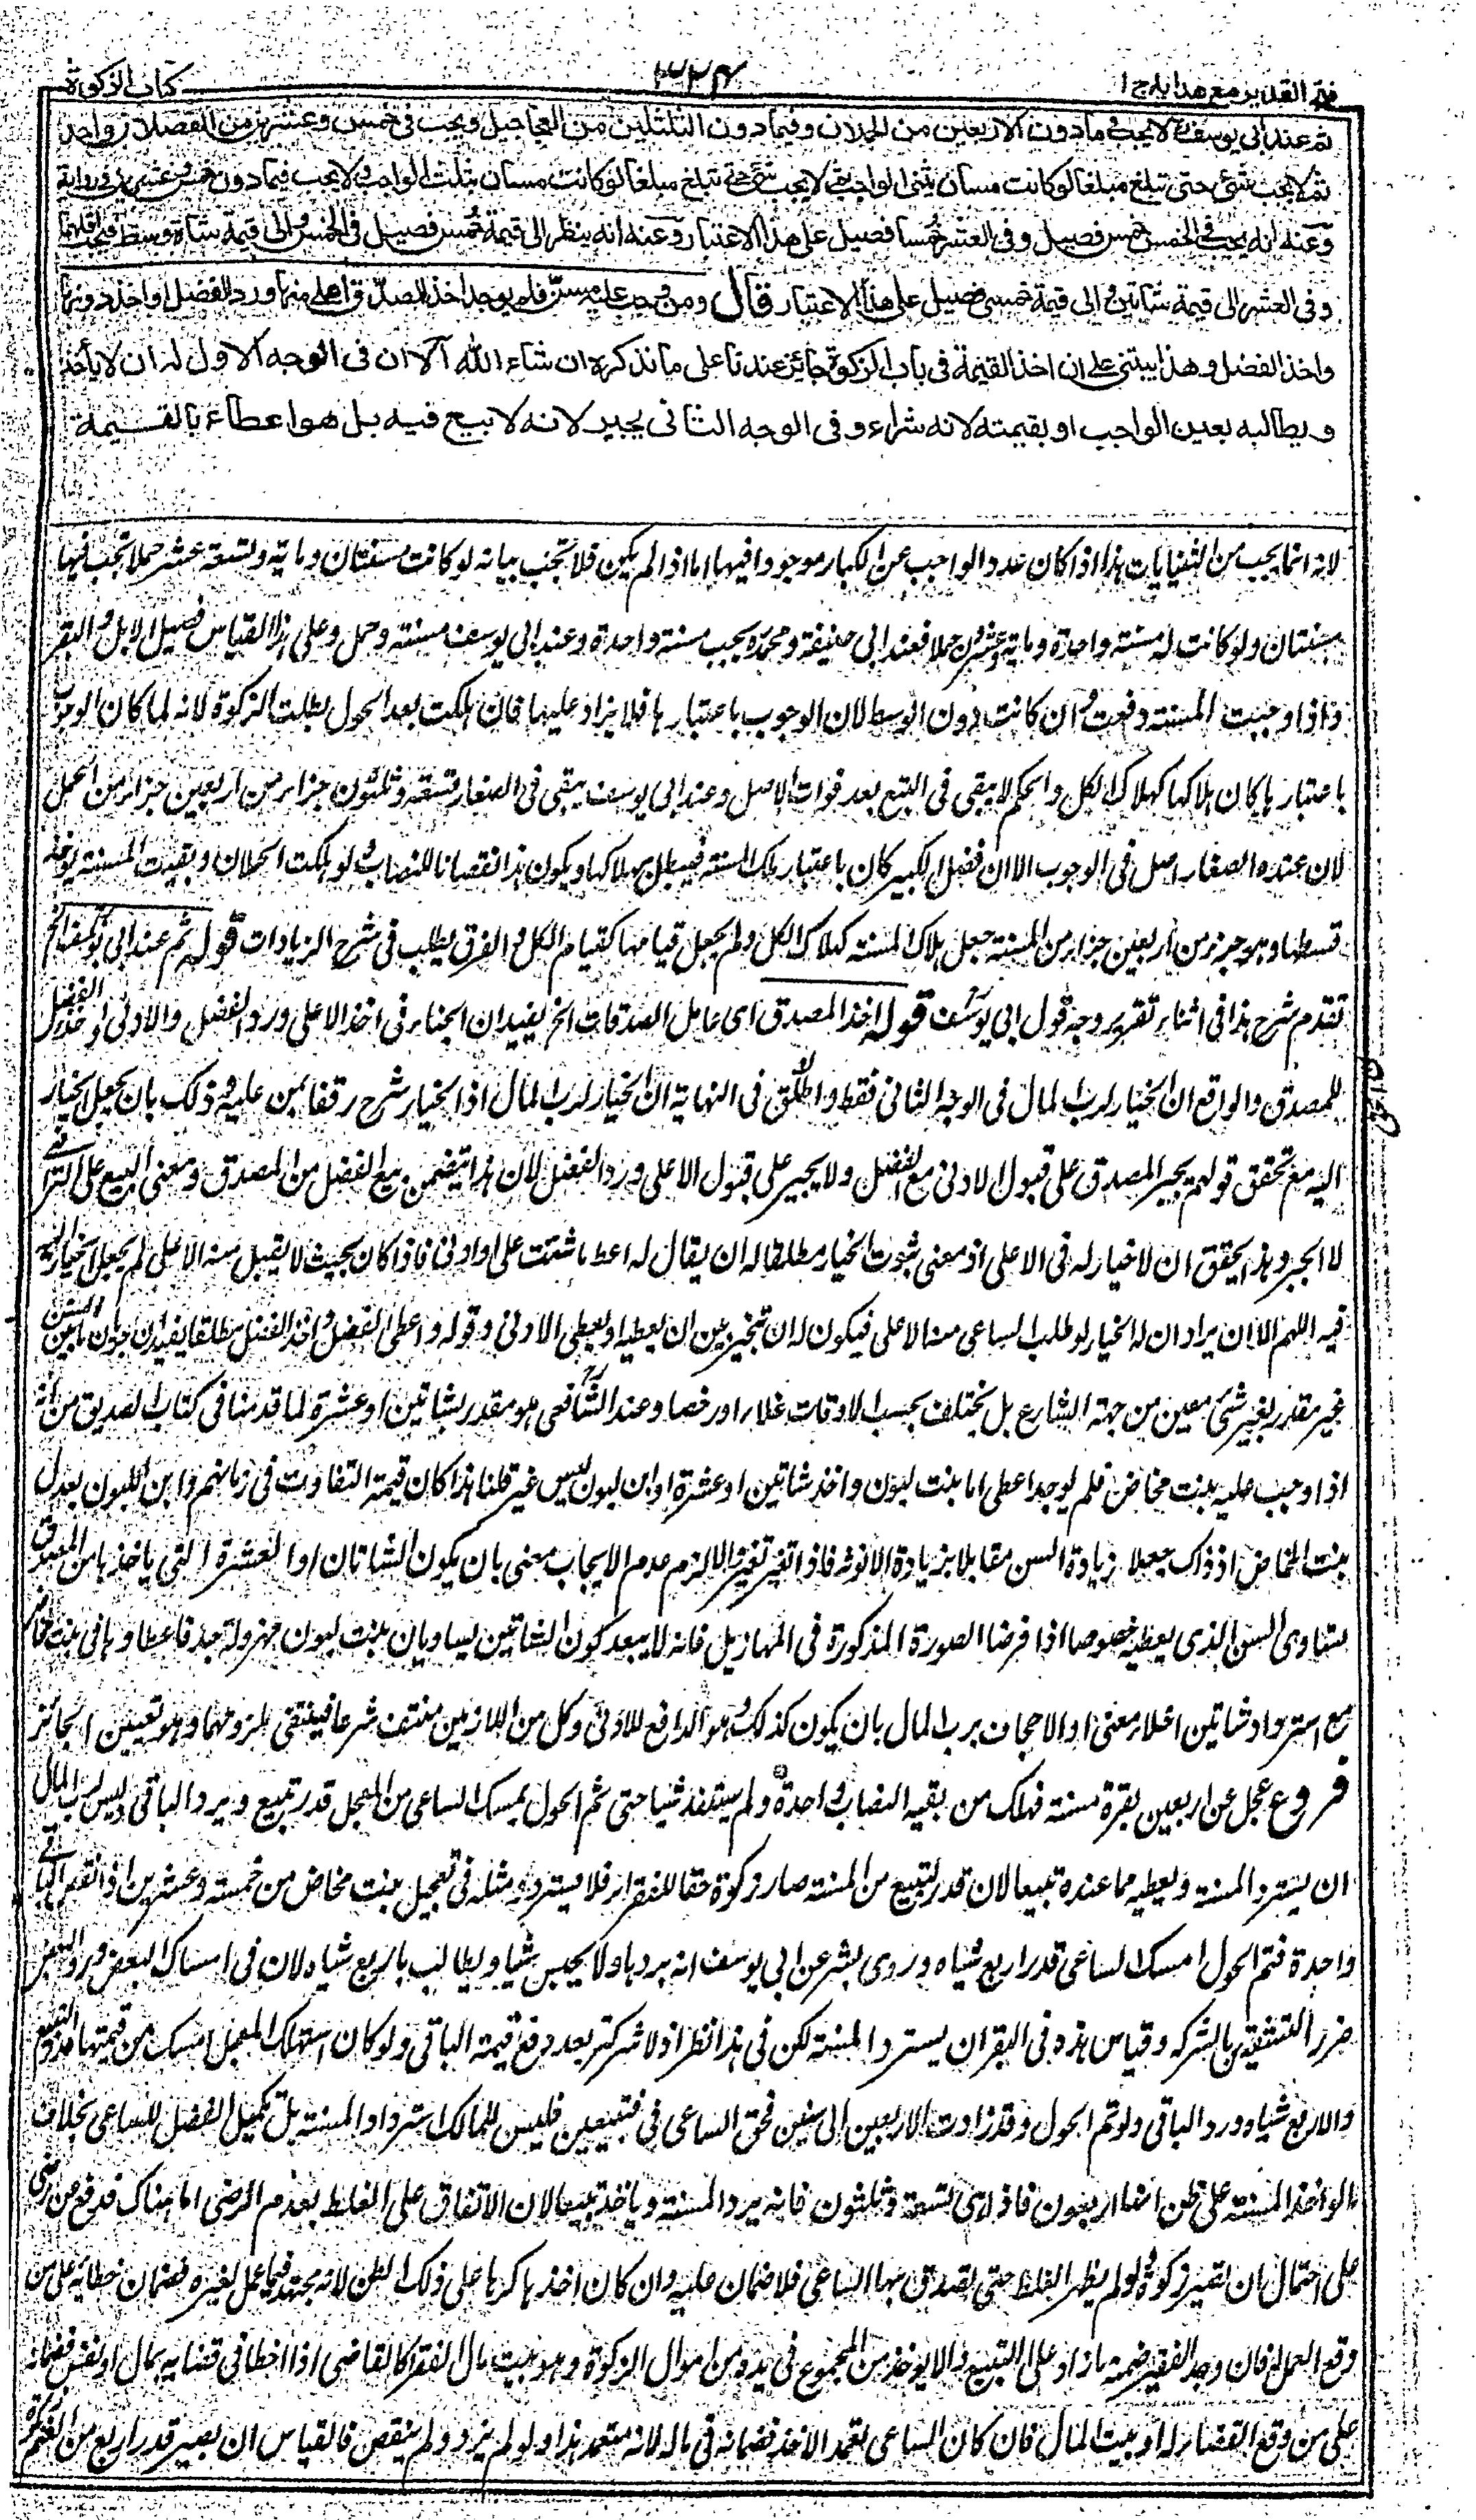 فتح القدير مع هدايه ج ا
٣٣٤
كتاب الزكوة
ثم عند ابى يوسف رح لا يجب فى ما دون الاربعين من الحملان وفيما دون الثلثين من العجاجيل ويجب فى خمس وعشرين من الفصلان واحد
ثم لا يجب شئ حتى تبلغ مبلغا لو كانت مسان يثنى الواجب ثم لا يجب شئ حتى تبلغ مبلغا لو كانت مسان يثلث الواجب ولا يجب فيما دون خمس وعشرين فى رواية
وعنه انه يجب فى الخمس خمس فصيل وفى العشر خمسا فصيل على هذا الاعتبار وعنه انه ينظر الى قيمة خمس فصيل فى الخمس والى قيمة شاة وسط فيجب اقلهما
وفى العشر الى قيمة شاتين والى قيمة خمسى فصيل على هذا الاعتبار قال ومن وجب عليه مسن فلم يوجد اخذ المصدق اعلى منها ورد الفضل او اخذ دونها
واخذ الفضل وهذا يبتنى على ان اخذ القيمة فى باب الزكوة جائز عندنا على ما نذكره ان شاء الله الا ان فى الوجه الاول له ان لا يأخذ
ويطالبه بعين الواجب او بقيمته لانه شراء وفى الوجه الثانى يجبر لانه لا بيع فيه بل هو اعطاء بالقيمة
لانه انما يجب من الثنايات هذا اذا كان عدد الواجب من الكبار موجودا فيها اما اذا لم يكن فلا تجب بيانه لو كانت مسنتان ومايه وتسعة عشر حملا تجب فيها
مسنتان ولو كانت له مسنة واحدة ومايه وعشرون حملا فعند ابى حنيفة ومحمد رح يجب مسنة واحدة وعند ابى يوسف مسنة وحمل وعلى هذا القياس فصيل الابل والبقر
واذا وجبت المسنة دفعت وان كانت دون الوسط لان الوجوب باعتبارها فلا يزاد عليها فان هلكت بعد الحول بطلت الزكوة لانه لما كان الوجوب
باعتبارها كان هلاكها كهلاك الكل والحكم لا يبقى فى التبع بعد فوات الاصل وعند ابى يوسف يبقى فى الصغار تسعة وثلثون جزءا من اربعين جزءا من الحمل
لان عنده الصغار اصل فى الوجوب الا ان فضل الكبير كان باعتبار تلك المسنة فيبطل بهلاكها ويكون هذا نقصانا للنصاب ولو هلكت الحملان وبقيت المسنة يوخذ
قسطها وهو جزء من اربعين جزءا من المسنة جعل هلاك المسنة كهلاك الكل ولم يجعل قيامها كقيام الكل والفرق يطلب فى شرح الزيادات قوله ثم عند ابى يوسف الخ
تقدم شرح هذا فى اثناء تقرير وجه قول ابى يوسف قوله اخذ المصدق اى عامل الصدقات الخ يفيد ان الخيار فى اخذ الاعلى ورد الفضل والادنى او اخذ الفضل
للمصدق والواقع ان الخيار لرب المال فى الوجه الثانى فقط واطلق فى النهاية ان الخيار لرب المال اذ الخيار شرع رفقا بمن عليه وذلك بان يجعل الخيار
اليه مع تحقق قولهم يجبر المصدق على قبول الادنى مع الفضل ولا يجبر على قبول الاعلى ورد الفضل لان هذا يتضمن بيع الفضل من المصدق ومعنى البيع على التراضى
لا الجبر وهذا يحقق ان لا خيار له فى الاعلى اذ معنى ثبوت الخيار مطلقا له ان يقال له اعط ما شئت اعلى او ادنى فاذا كان بحيث لا يقبل منه الاعلى لم يجعل الخيار اليه
فيه اللهم الا ان يراد ان له الخيار لو طلب الساعى منه الاعلى فيكون له ان يتخير بين ان يعطيه او يعطى الادنى وقوله واعطى الفضل واخذ الفضل مطلقا يفيد ان جبران ما بين السنين
غير مقدر بغير شئ معين من جهة الشارع بل يختلف بحسب الاوقات غلاء ورخصا وعند الشافعى هو مقدر بشاتين او عشرة لما قدمنا فى كتاب الصديق من انه
اذا وجب عليه بنت مخاض فلم توجد اعطى اما بنت لبون واخذ شاتين او عشرة او ابن لبون ليس غير قلنا هذا كان قيمة التفاوت فى زمانهم وابن اللبون يعدل
بنت المخاض اذ ذاك جعلا لزيادة السن مقابلا بزيادة الانوثة فاذا تغير تغير والا لزم عدم الايجاب معنى بان يكون الشاتان او العشرة التى ياخذها من المصدق
يساوى السن الذى يعطيه خصوصا اذا فرضنا الصورة المذكورة فى المهازيل فانه لا يبعد كون الشاتين يساويان بنت لبون مهزولة جدا فاعطاؤها فى بنت مخاض
مع استرداد شاتين اخلاء معنى او الاجحاف برب المال بان يكون كذلك وهو الدافع للادنى وكل من اللازمين منتف شرعا فينتفى ملزومهما وهو تعيين الجابر
فروع عجل عن اربعين بقرة مسنة فهلك من بقية النصاب واحدة ولم يستفد شيا حتى تم الحول يمسك الساعى من المعجل قدر تبيع ويرد الباقى وليس لرب المال
ان يسترد المسنة ويعطيه مما عنده تبيعا لان قدر التبيع من المسنة صار زكوة حقا للفقراء فلا يسترد ومثله فى تعجيل بنت مخاض من خمسة وعشرين اذا نقص الباقى
واحدة فتم الحول امسك الساعى قدر اربع شياه وروى بشر عن ابى يوسف انه يردها ولا يحبس شيا ويطالب باربع شياه لان فى امساك البعض ورد البعض
ضرر التشقيص بالشركة وقياس هذه فى البقر ان يسترد المسنة لكن فى هذا نظر اذ لا شركة بعد دفع قيمة الباقى ولو كان استهلك المعجل امسك من قيمتها قدر التبيع
والاربع شياه ورد الباقى ولو تم الحول وقد زادت الاربعين الى ستين فحق الساعى فى تبيعين فليس للمالك استرداد المسنة بل تكميل الفضل للساعى بخلاف
ما لو اخذ المسنة على ظن انها اربعون فاذا هى تسعة وثلثون فانه يرد المسنة وياخذ تبيعا لان الاتفاق على الغلط يعدم الرضى اما هناك فدفع عن رضى
على احتمال ان تصير زكوة ولو لم يظهر الغلط حتى تصدق بها الساعى فلا ضمان عليه وان كان اخذها كرها على ذلك الظن لانه مجتهد فيما عمل لغيره فضمان خطائه على من
وقع العمل له فان وجد الفقير ضمنه ما زاد على التبيع والا يوخذ من المجموع فى يده من اموال الزكوة وهو بيت مال الفقراء كالقاضى اذا اخطا فى قضايه بمال او نفس فضمانه
على من وقع القضاء له او بيت المال فان كان الساعى تعمد الاخذ فضمانه فى ماله لانه متعمد هذا ولو لم يزد ولم ينقص فالقياس ان يصير قدر اربع من الغنم زكوة